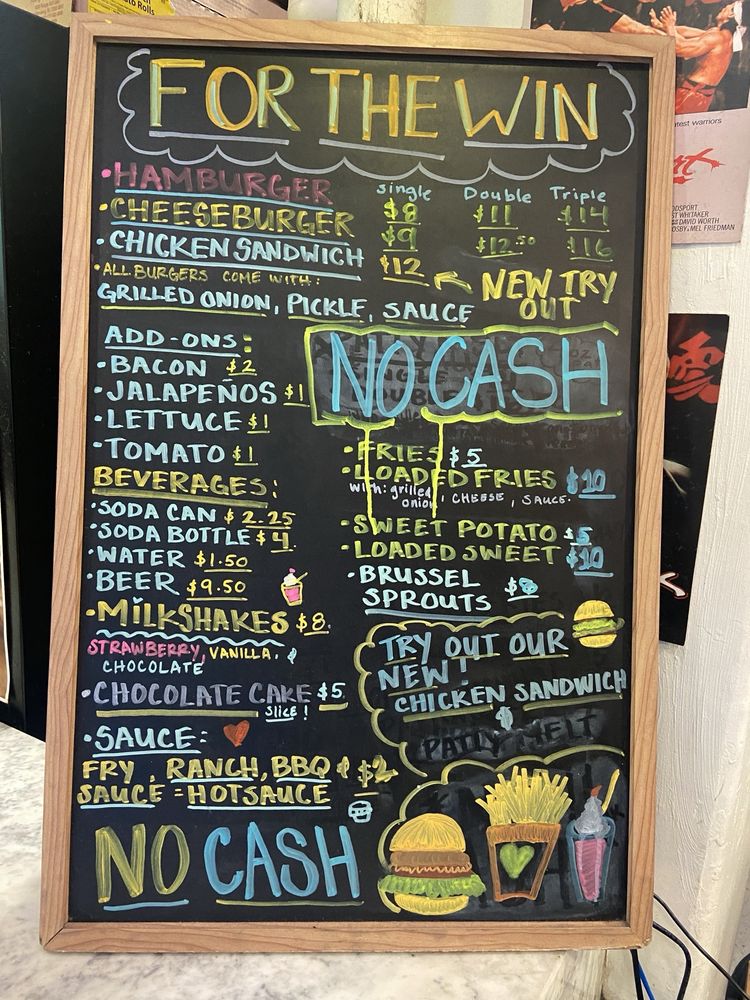 FOR THE WIN
single Double Triple
• HAMBURGER $8 $11 $14
• CHEESEBURGER $9 $12.50 $16
• CHICKEN SANDWICH $12
NEW TRY
OUT
• ALL BURGERS COME WITH:
GRILLED ONION, PICKLE, SAUCE
ADD-ONS:
• BACON $2
• JALAPEÑOS $1
• LETTUCE $1
• TOMATO $1
BEVERAGES:
• SODA CAN $2.25
• SODA BOTTLE $4
• WATER $1.50
• BEER $9.50
• MILKSHAKES $8.
STRAWBERRY, VANILLA, &
CHOCOLATE
• CHOCOLATE CAKE $5
SLICE!
• SAUCE:
FRY, RANCH, BBQ & $2
SAUCE = HOTSAUCE
NO CASH
NO CASH
• FRIES $5
• LOADED FRIES $10
with: grilled onion, CHEESE, SAUCE.
• SWEET POTATO $5
• LOADED SWEET $10
• BRUSSEL
SPROUTS
TRY OUT OUR
NEW!
CHICKEN SANDWICH
&
PATTY MELT
to Rolls
test warriors
ODSPORT
ST WHITAKER
DAVID WORTH
OSBY & MEL FRIEDMAN